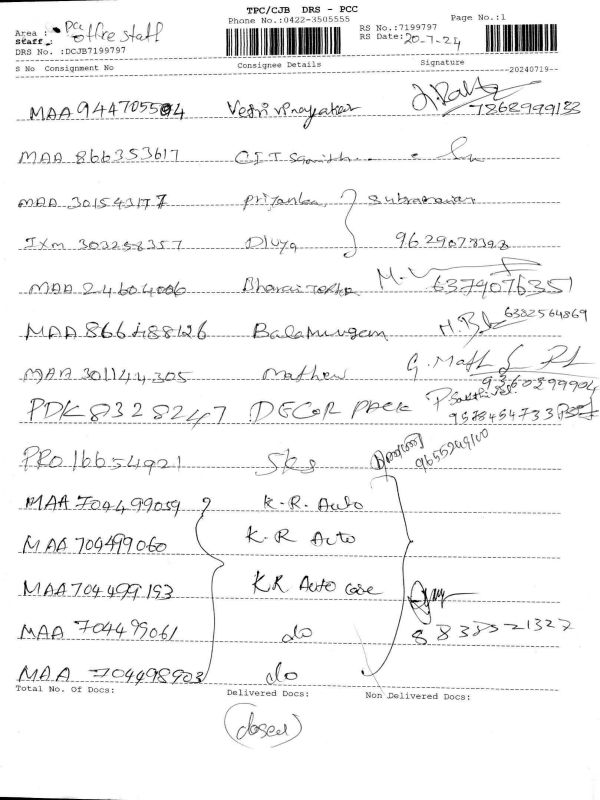 TPC/CJB DRS - PCC
Phone No.:0422-3505555 Page No.:1
Area : PCC office staff RS No.:7199797
Staff : RS Date: 20-7-24
DRS No. :DCJB7199797
S No Consignment No Consignee Details Signature
--20240719--
MAA 944705504 Vetri Vinayakar 7268999133
MAA 866353617 CIT
MAA 301543177 Priyanka,
IXM 303258357 Divya 9629078398
MAA 24604006 Bharai 6379076351
MAA 866488126 Balamurugan 6382564869
MAA 301144305 Mathew 9360299904
PDK 8328247 DECOR PACK P. Sakthivel 9578454733
PRO 16654921 SKS 9655249100
MAA 704499059 K.R. Auto
MAA 704499060 K.R Auto
MAA 704499153 K.R Auto
MAA 704499061 do 8838521322
MAA 704498903 do
Total No. Of Docs: Delivered Docs: Non Delivered Docs:
(closed)